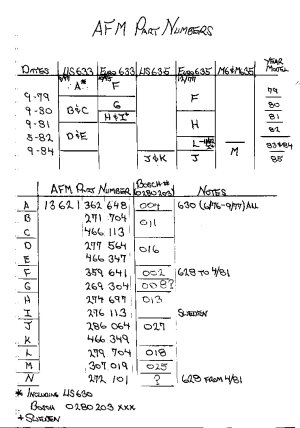 AFM PART NUMBERS
DATES US633 EURO633 US635 EURO635 M6&M635 YEAR MODEL
A* F
9-79 F 79
G
9-80 B&C 80
H&I+
9-81 H 81
8-82 D&E 82
L
9-84 M 83&84
J&K J 85
AFM PART NUMBER BOSCH# (0280203) NOTES
A 13 62 1 362 648 004 630 (6/76-9/77) ALL
B 271 704 011
C 466 113
D 277 564 016
E 466 347
F 359 641 002 628 TO 4/81
G 269 304 008?
H 274 697 013
I 276 113 SWEDEN
J 286 064 027
K 466 349
L 279 704 018
M 307 019 025
N 272 101 ? 628 FROM 4/81
* INCLUDING US630
BOSCH 0280203 XXX
+ SWEDEN